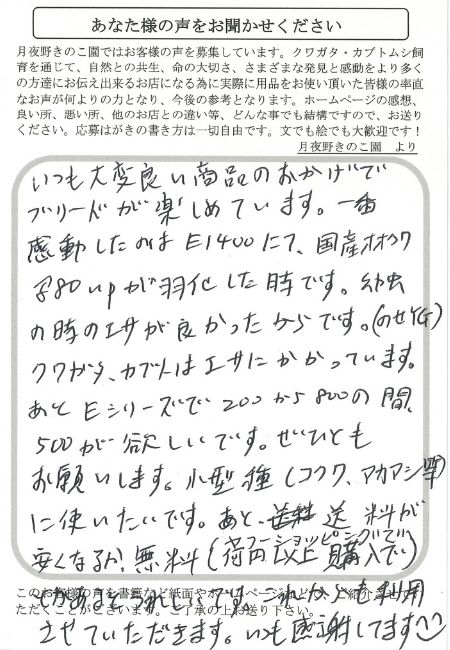 あなた様の声をお聞かせください
月夜野きのこ園ではお客様の声を募集しています。クワガタ・カブトムシ飼
育を通じて、自然との共生、命の大切さ、さまざまな発見と感動をより多く
の方達にお伝え出来るお店になる為に実際に用品をお使い頂いた皆様の率直
なお声が何よりの力となり、今後の参考となります。ホームページの感想、
良い所、悪い所、他のお店との違い等、どんな事でも結構ですので、お送り
ください。応募はがきの書き方は一切自由です。文でも絵でも大歓迎です！
月夜野きのこ園 より
いつも大変良い商品のおかげで
ブリードが楽しめています。一番
感動したのはE1400にて、国産オオクワ
♀80upが羽化した時です。幼虫
の時のエサが良かったからです。(のせYG)
クワガタ、カブトはエサにかかっています。
あとEシリーズで200から800の間、
500が欲しいです。ぜひとも
お願いします。小型種(コクワ、アカアシ等)
に使いたいです。あと、送料が
安くなるか、無料(荷円以上購入で)
ショッピングで
このお客様の声を書籍など紙面やホームページなどでご紹介させて
ただくことがございます。ご了承の上お送り下さい。
とかあるとうれしいです。これからも利用
させていただきます。いつも感謝してます^^